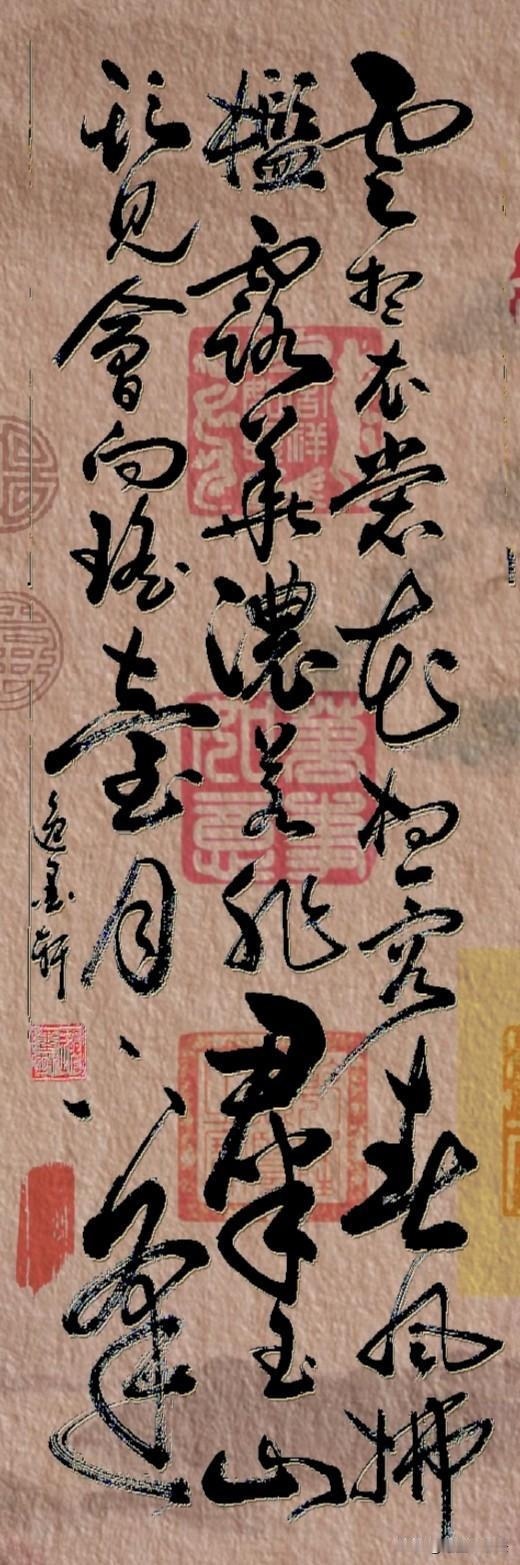 雲想衣裳花想容春風拂
檻露華濃若非羣玉山
頭見會向瑤臺月下逢
逸墨軒
萬事
如意